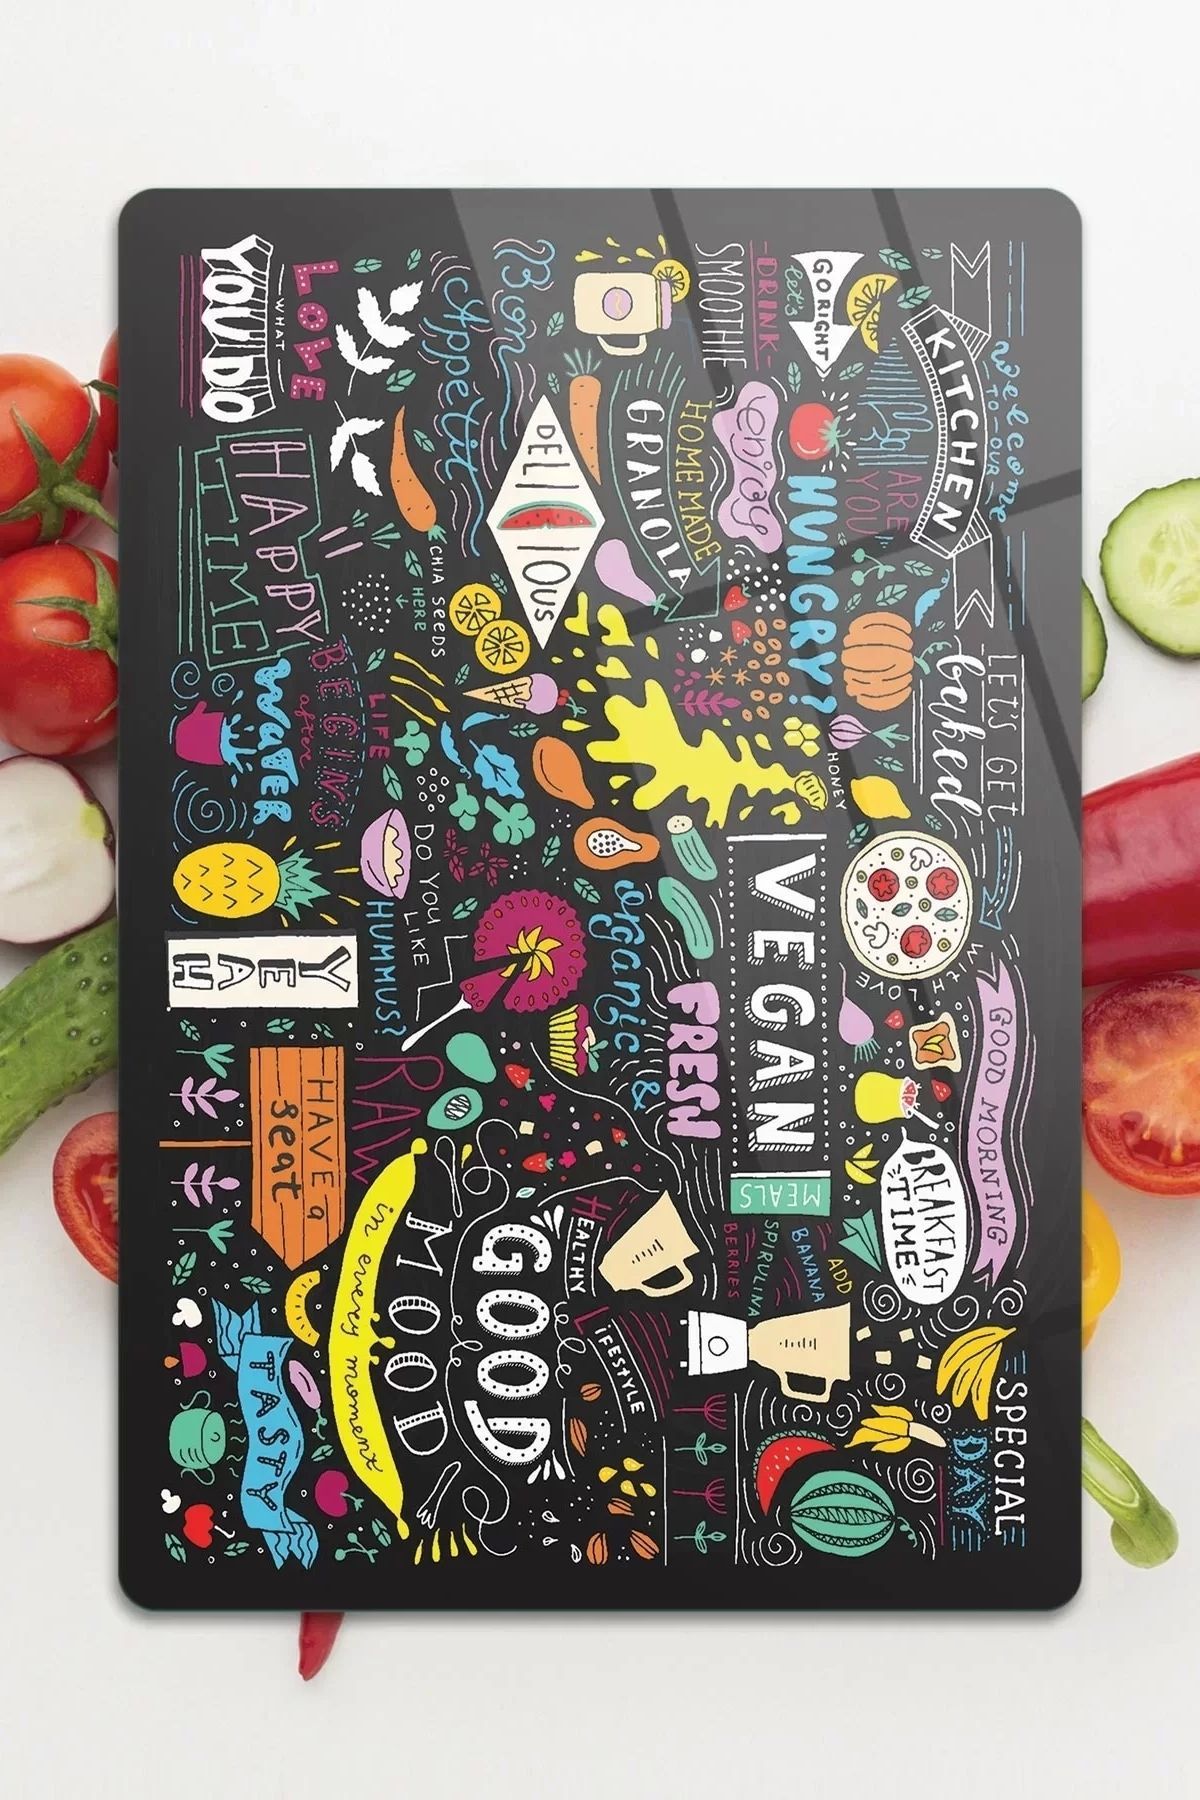 welcome
TO OUR
KITCHEN
LET'S GET
baked
WITH LOVE
GOOD MORNING
BREAKFAST
TIME
SPECIAL
DAY
GO RIGHT
let's
DRINK
SMOOTHIE
ARE
YOU
HUNGRY?
enjoy
HOMEMADE
GRANOLA
HONEY
VEGAN
MEALS
ADD
BANANA
SPIRULINA
BERRIES
Bon
Appetit
DELICIOUS
organic
&
FRESH
HEALTHY
LIFESTYLE
GOOD
MOOD
in every moment
CHIA SEEDS
HERE
DO YOU LIKE
HUMMUS?
RAW
LOVE
WHAT
YOU DO
HAPPY
TIME
LIFE
BEGINS
after
WATER
YEAH
HAVE a
seat
TASTY